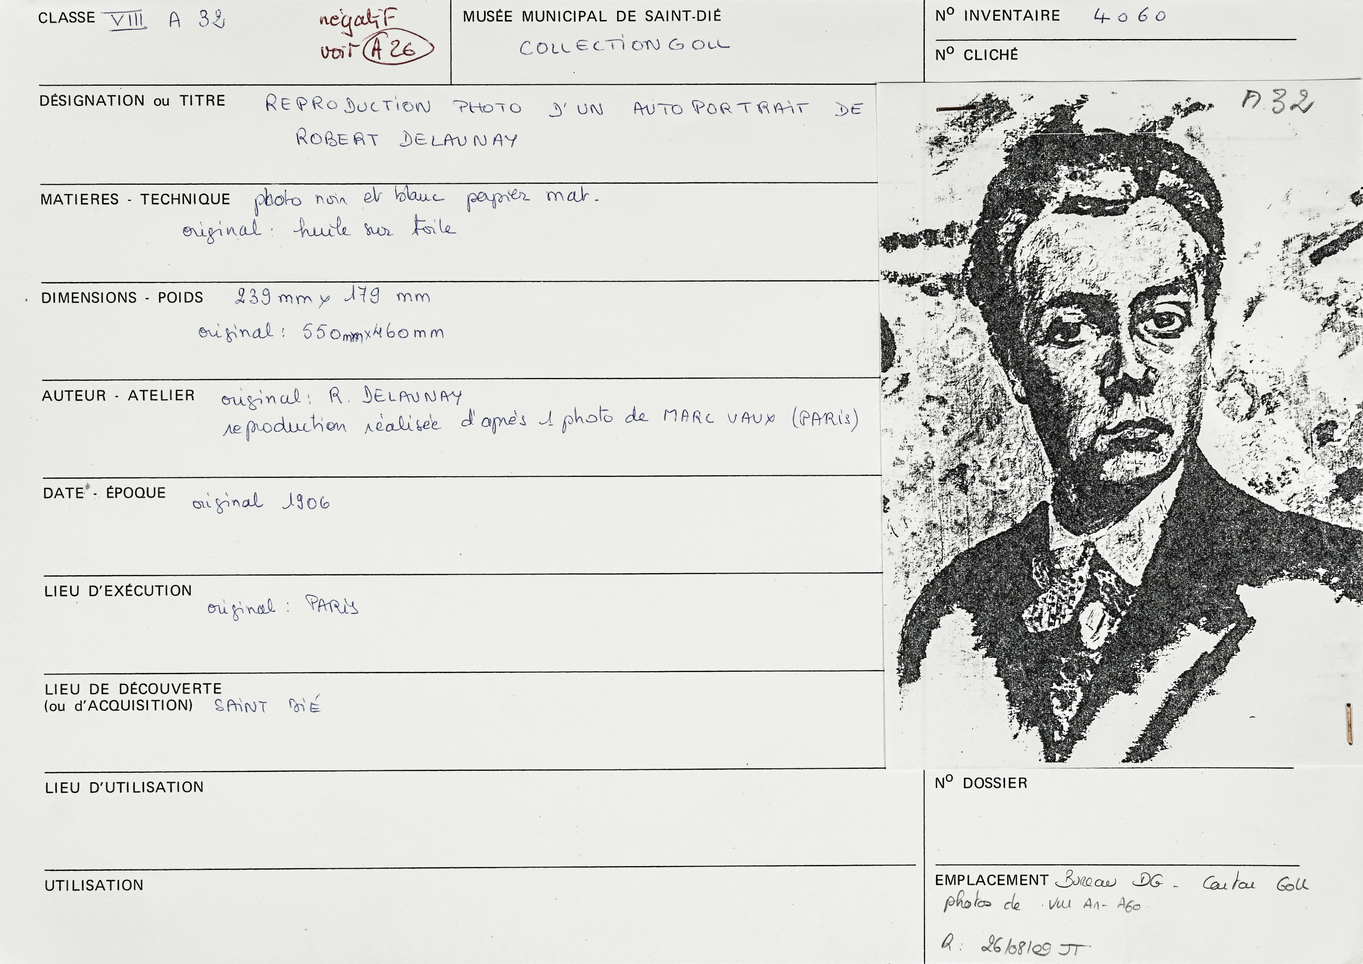 CLASSE VIII A 32
négatif
voir A 26
MUSÉE MUNICIPAL DE SAINT-DIÉ
COLLECTION GOLL
Nº INVENTAIRE 4060
Nº CLICHÉ
DÉSIGNATION ou TITRE REPRODUCTION PHOTO D'UN AUTOPORTRAIT DE
ROBERT DELAUNAY
A 32
MATIERES - TECHNIQUE photo noir et blanc papier mat.
original : huile sur toile
DIMENSIONS - POIDS 239 mm x 179 mm
original : 550mmx460mm
AUTEUR - ATELIER original : R. DELAUNAY
reproduction réalisée d'après 1 photo de MARC VAUX (PARIS)
DATE - ÉPOQUE original 1906
LIEU D'EXÉCUTION
original : PARIS
LIEU DE DÉCOUVERTE
(ou d'ACQUISITION) SAINT DIÉ
LIEU D'UTILISATION
Nº DOSSIER
UTILISATION
EMPLACEMENT Bureau DG - Carton Goll
photos de VIII A1- A60
R : 26/08/09 JT